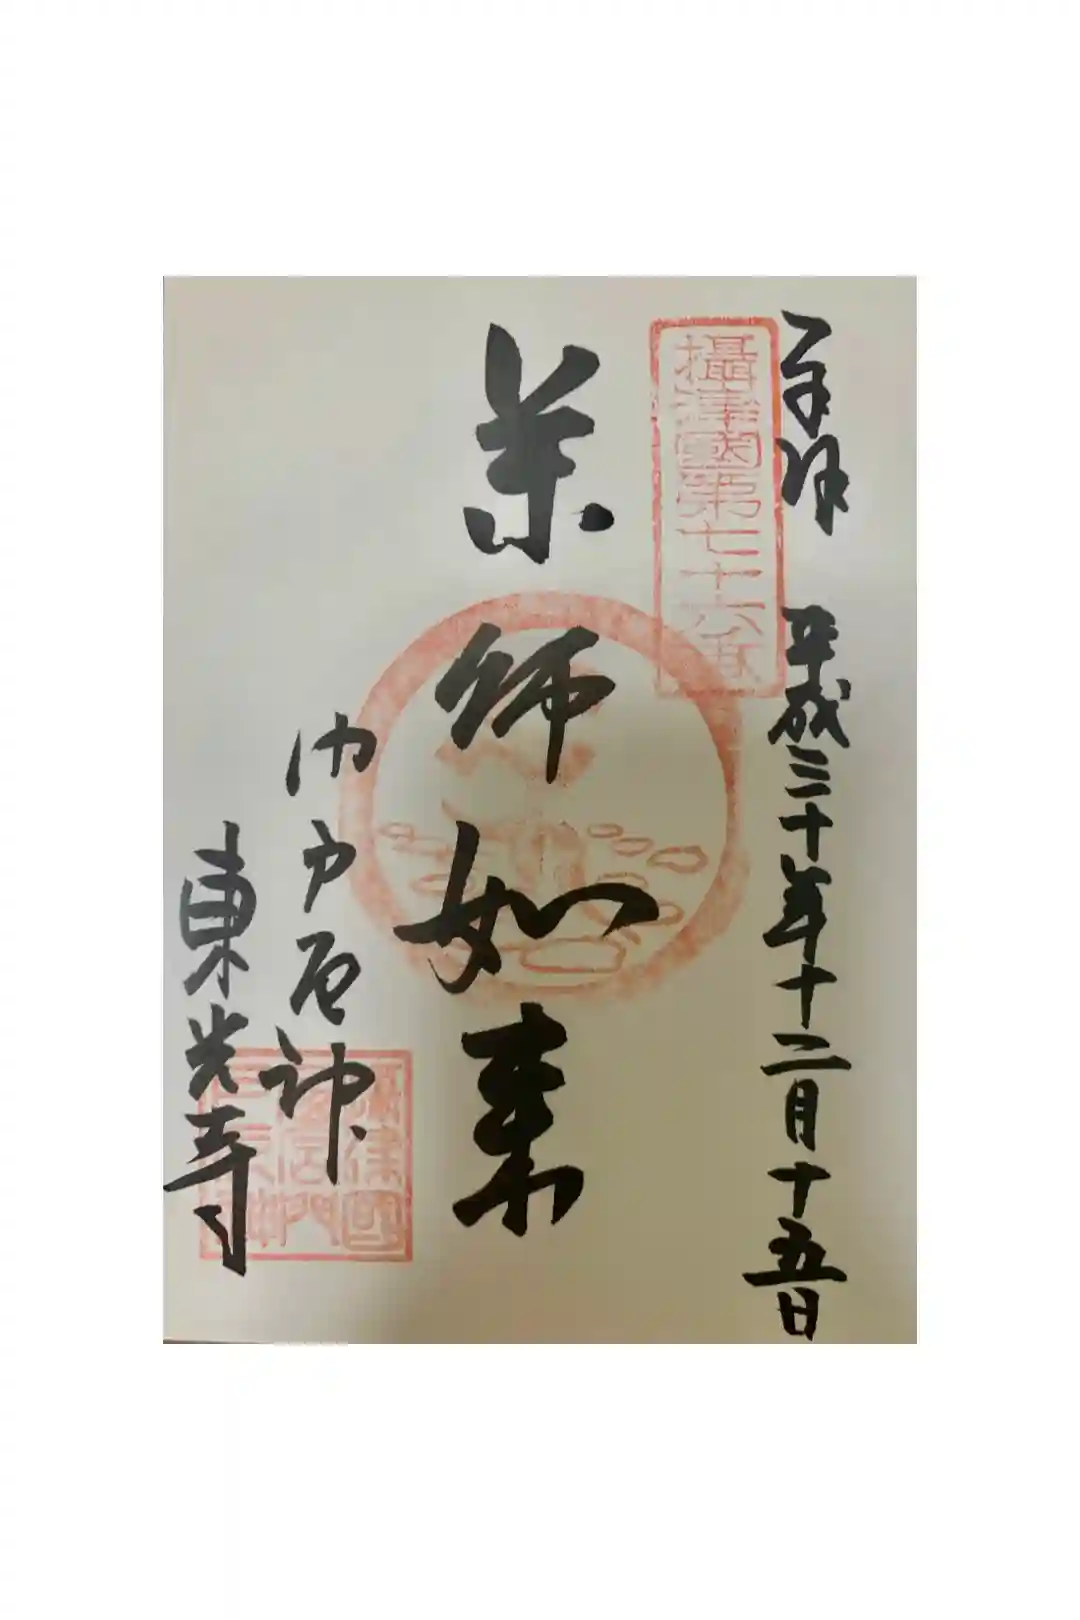 奉拝 平成三十年十二月十五日
攝津國第七十六番
薬師如来
門戸厄神
東光寺
攝津國